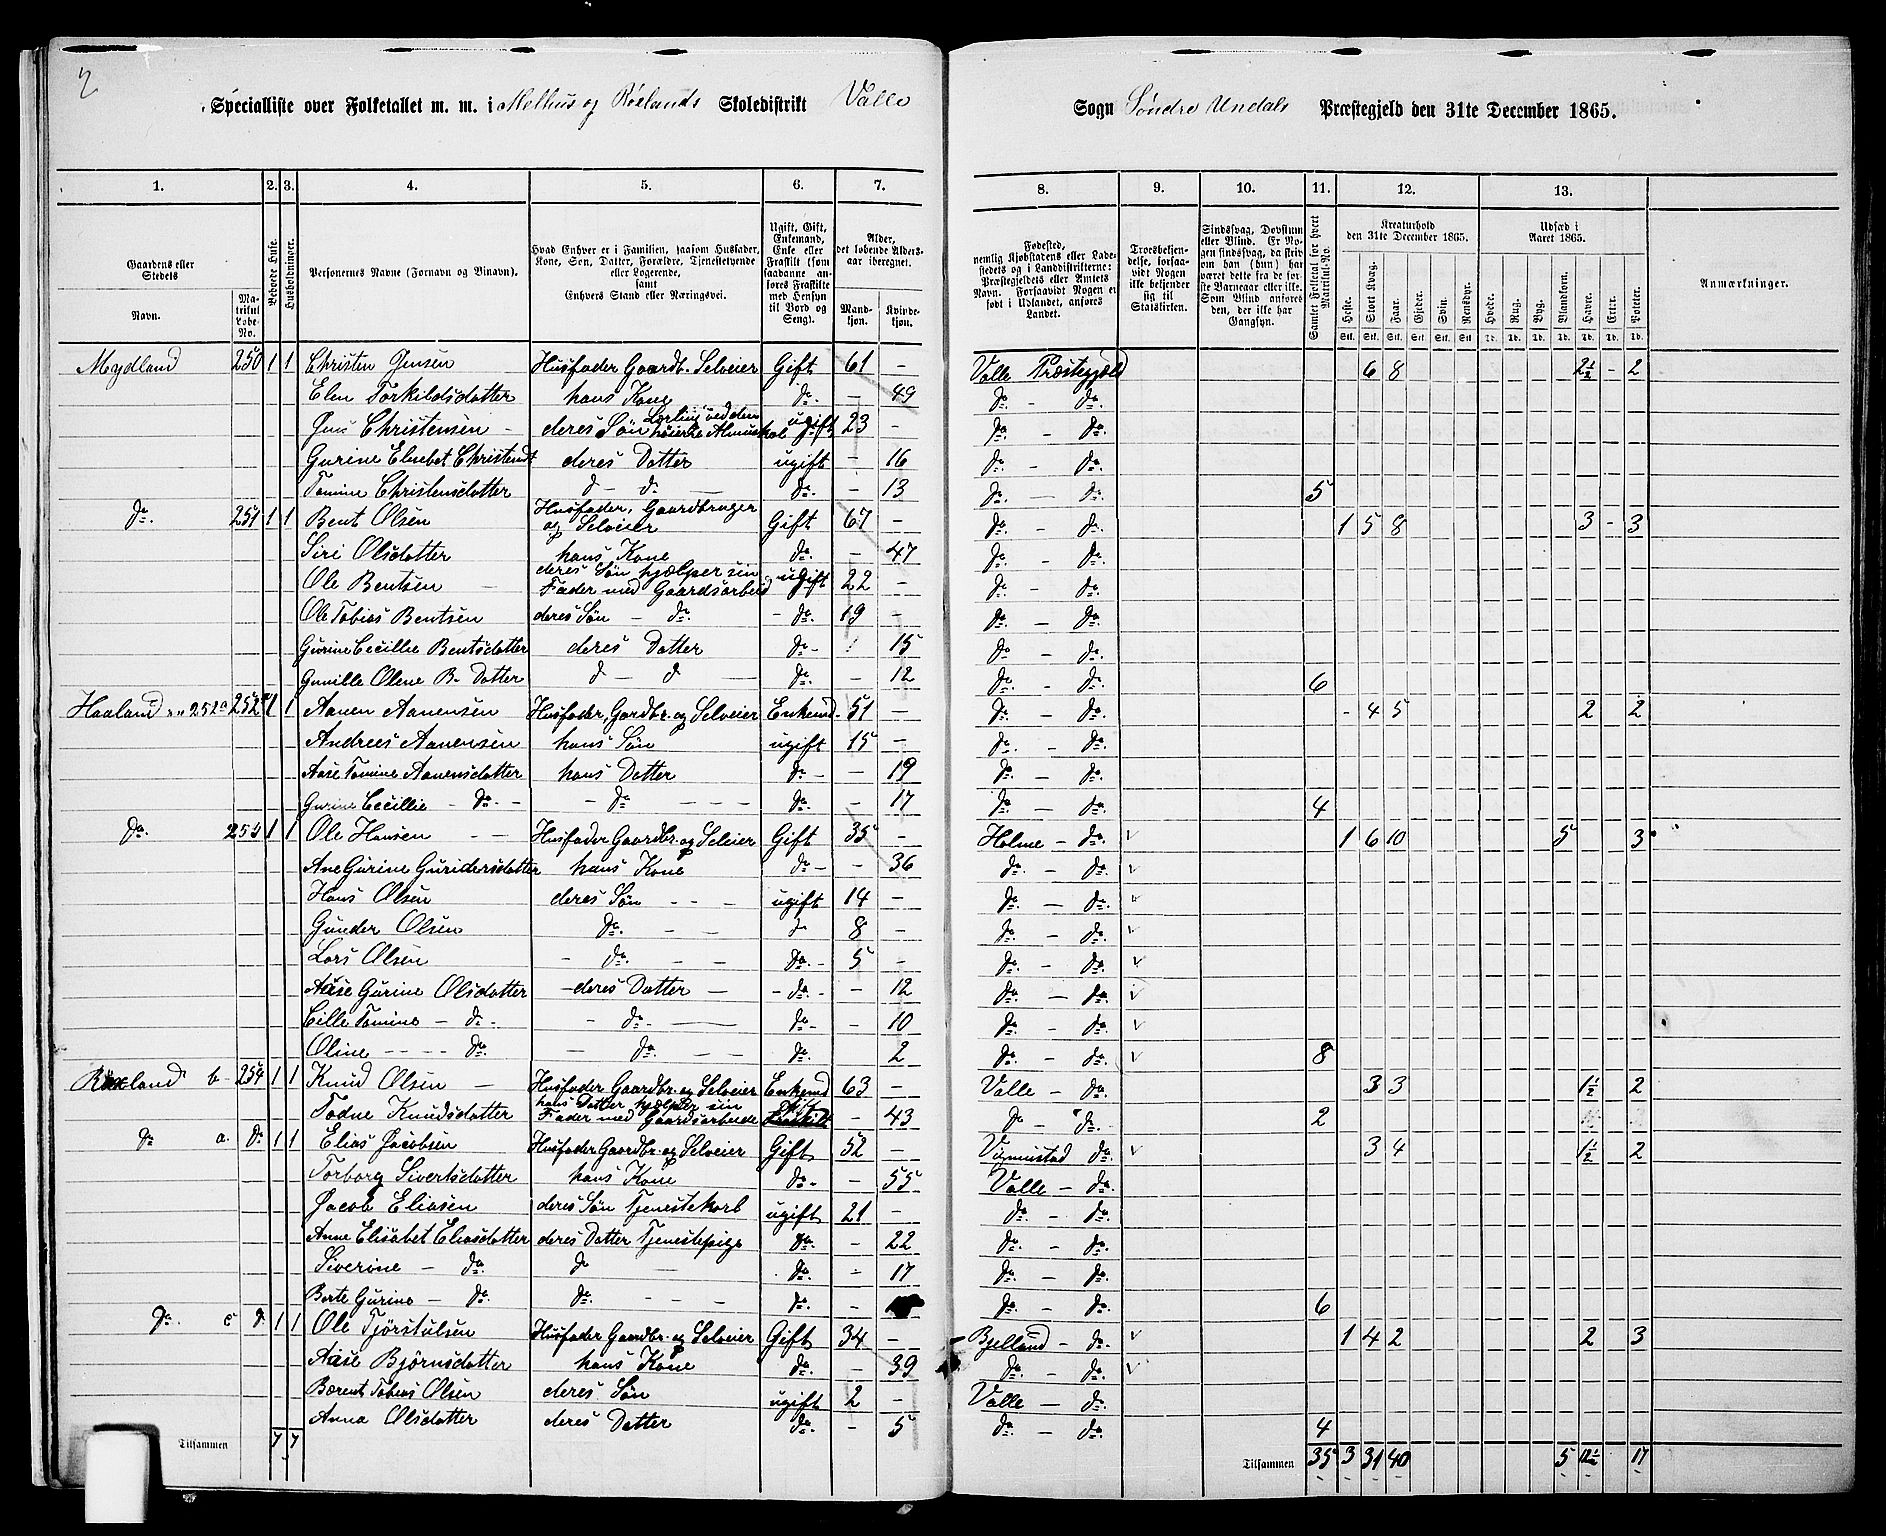 2
Specialliste over Folketallet m. m. i Melhus og Røelands Skoledistrikt Valle Sogn Søndre Undals Præstegjeld den 31te December 1865.
1. 2. 3. 4. 5. 6. 7. 8. 9. 10. 11. 12. 13.
Gaardens eller Stedets
Navn.
Matrikul Løbe-No.
Beboede Huse.
Husholdninger.
Personernes Navne (Fornavn og Tilnavn).
Hvad Enhver er i Familien, saasom Husfader, Kone, Søn, Datter, Forældre, Tjenestetyende eller Logerende, samt Enhvers Stand eller Næringsvei.
Ugift, Gift, Enkemand, Enke eller Fraskilt (som saadanne anføres Fraskilte med Hensyn til Bord og Seng).
Alder, det løbende Alders-aar iberegnet.
Mandkjøn. Kvindekjøn.
Fødested, nemlig Kjøbstadens eller Ladestedets og i Landdistrikterne: Præstegjeldets eller Amtets Navn. Forsaavidt Nogen er født i Udlandet, anføres Landet.
Troesbekjendelse, forsaavidt Nogen ikke bekjender sig til Statskirken.
Sindssvag, Døvstum eller Blind. Er Nogen sindssvag, da skrives om han (hun) har været dette fra de første Barneaar eller ikke. Som Blind anføres den, der ikke har Gangsyn.
Samlet Folketal for hvert Matrikul-No.
Kreaturhold den 31te December 1865.
Heste. Stort Kvæg. Faar. Gjeder. Sviin. Rensdyr.
Stk. Stk. Stk. Stk. Stk. Stk.
Udsæd i Aaret 1865.
Hvede. Rug. Byg. Blandkorn. Havre. Erter. Poteter.
Td. Td. Td. Td. Td. Td. Td.
Anmærkninger.
Mydland 250 1 1 Christen Jensen Husfader Gaardb. Selveier Gift 61 - Valle Præstegjeld 6 8 2½ - 2
Elen Torkildsdatter hans Kone do. - 49 do. - do.
Jens Christensen - deres Søn Lærling ved den høiere Almueskol ugift 23 - do. - do.
Gurine Elisebet Christensdt deres Datter ugift - 16 do. - do.
Tomine Christensdatter d - do - do. - 13 do. - do. 5
do. 251 1 1 Bent Olsen Husfader, Gaardbruger og Selveier Gift 67 - do. - do. 1 5 8 3 - 3
Siri Olsdatter hans Kone do. - 47 do. - do.
Ole Bentsen - deres Søn hjælper sin Fader med Gaardsarbeid ugift 22 - do. - do.
Ole Tobias Bentsen deres Søn - do. - do. 19 - do. - do.
Gurine Cecillie Bentsdatter deres Datter do - 15 do. - do.
Gunille Olene B. Datter d - d - do. - 12 do. - do. 6
Haaland 252a 252 1 1 Aanen Aanensen Husfader, Gardbr. og Selveier Enkemd. 51 - do. - do. - 4 5 2 - 2
Andrees Aanensen hans Søn ugift 15 - do. - do.
Aase Tomine Aanensdatter hans Datter do - - 19 do. - do.
Gurine Cecillie - do. - - do - - - do. - 17 do. - do. 4
do. 253 1 1 Ole Hansen - - Husfader Gaardbr. og Selveier Gift 35 - Holme - do. v 1 6 10 5 3
Ane Gurine Guridersdatter hans Kone do - - 36 do. - do. v
Hans Olsen deres Søn - - - ugift 14 - do. - do. v
Gunder Olsen do. - - 8 - do. - do. v
Lars Olsen - do. - - do. - 5 - do. - do. v
Aase Gurine Olsdatter - deres Datter - - do. - - 12 do. - do. v
Cille Tomine - do. - do. - do. - - 10 do. - do. v
Oline - - - - do. - do. - do. 2 do. - do. v 8
Røeland b 254 1 1 Knud Olsen - Husfader Gaardbr. og Selveier Enkemd 63 - Valle - do. 3 3 1½ 2
Todne Knudsdatter hans Datter hjælper sin Fader med Gaardsarbeide - 43 do - do. 2
do a. do. 1 1 Elias Jacobsen Husfader Gaardbr. og Selveier Gift 52 - Vigmostad do. v 3 4 1½ 2
Torborg Sivertsdatter hans Kone do. - - 55 Valle - do.
Jacob Eliasen deres Søn Tjenestekarl ugift 21 - do. - do.
Anne Elisabet Eliasdatter deres Datter Tjenestepige do. - 22 do. - do.
Siverine - do. do - do. - 17 do. - do.
Berte Gurine - do. do. - - - do. - do. - do. 6
do. c d. 1 1 Ole Tjørstulsen Husfader Gaardbr. og Selveier Gift 34 - Bjelland - do. v 1 4 2 2 3
Aase Bjørnsdatter hans Kone do. - 39 do. - do. v
Bærent Tobias Olsen deres Søn ugift 2 - Valle - do.
Anna Olsdatter deres Datter do. - 5 do. - do. 4
Tilsammen 7 7 Tilsammen 35 3 31 40 5 12½ 17